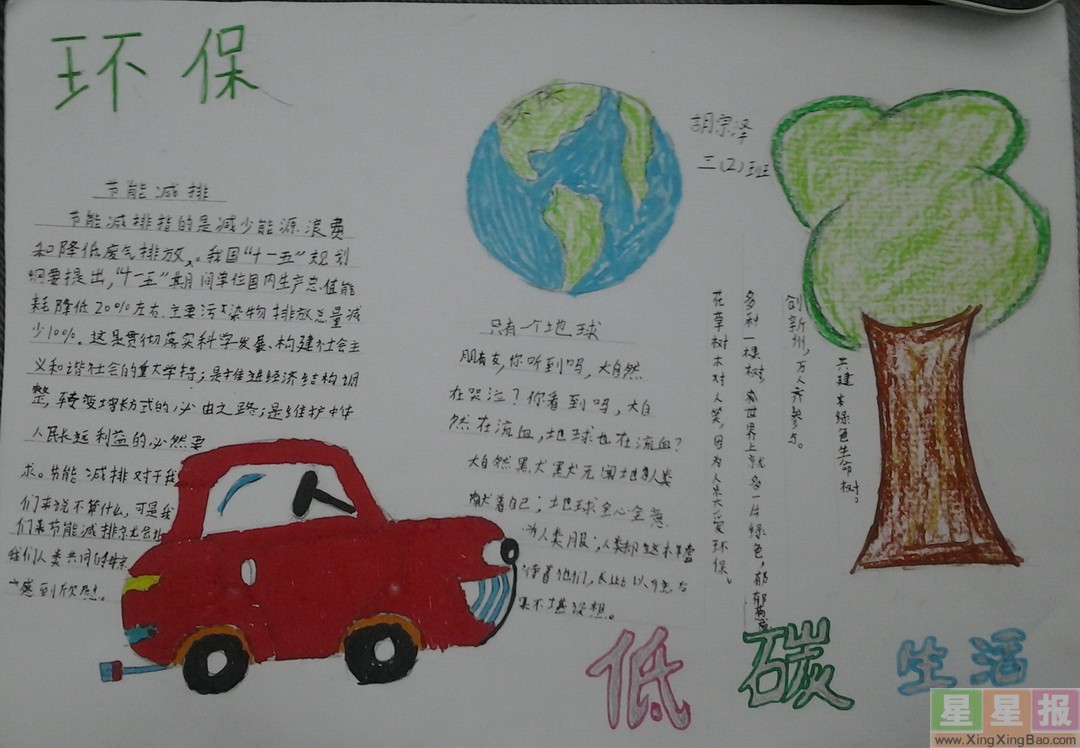 环保
节能减排
节能减排指的是减少能源浪费
和降低废气排放。我国“十一五”规划
纲要提出,“十一五”期间单位国内生产总值能
耗降低20%左右、主要污染物排放总量减
少10%。这是贯彻落实科学发展、构建社会主
义和谐社会的重大举措;是推进经济结构调
整,转变增长方式的必由之路;是维护中华
人民长远利益的必然要
求。节能减排对于我
们来说不算什么,可是我
们来节能减排
我们人类共同的
感到欣慰。
环保
只有一个地球
朋友,你听到吗,大自然
在哭泣?你看到吗,大自
然在流血,地球也在流血?
大自然黑犬黑犬无闻地为人类
献着自己;地球全心全意
为人类服,人类却
着他们,长此以
果不堪设想。
胡宗泽
三(2)班
共建本绿色生命树。
创新州,万人齐参与。
多种一棵树,世界上就多一片绿色,郁郁葱
花草树木对人笑,因为人类爱环保。
低碳生活
星星报
www.XingXingBao.com